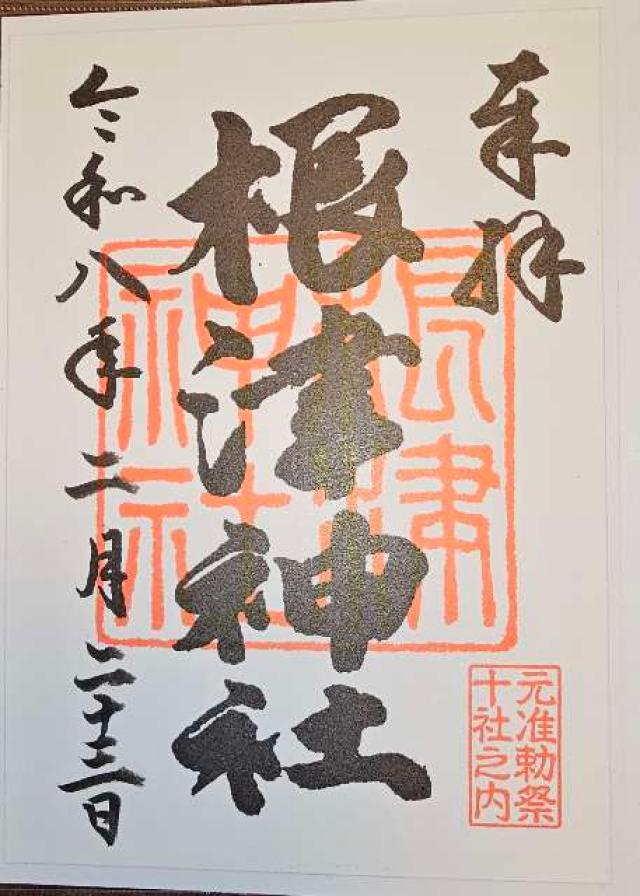 奉拝
根津神社
根津神社
元准勅祭
十社之内
令和八年二月二十三日